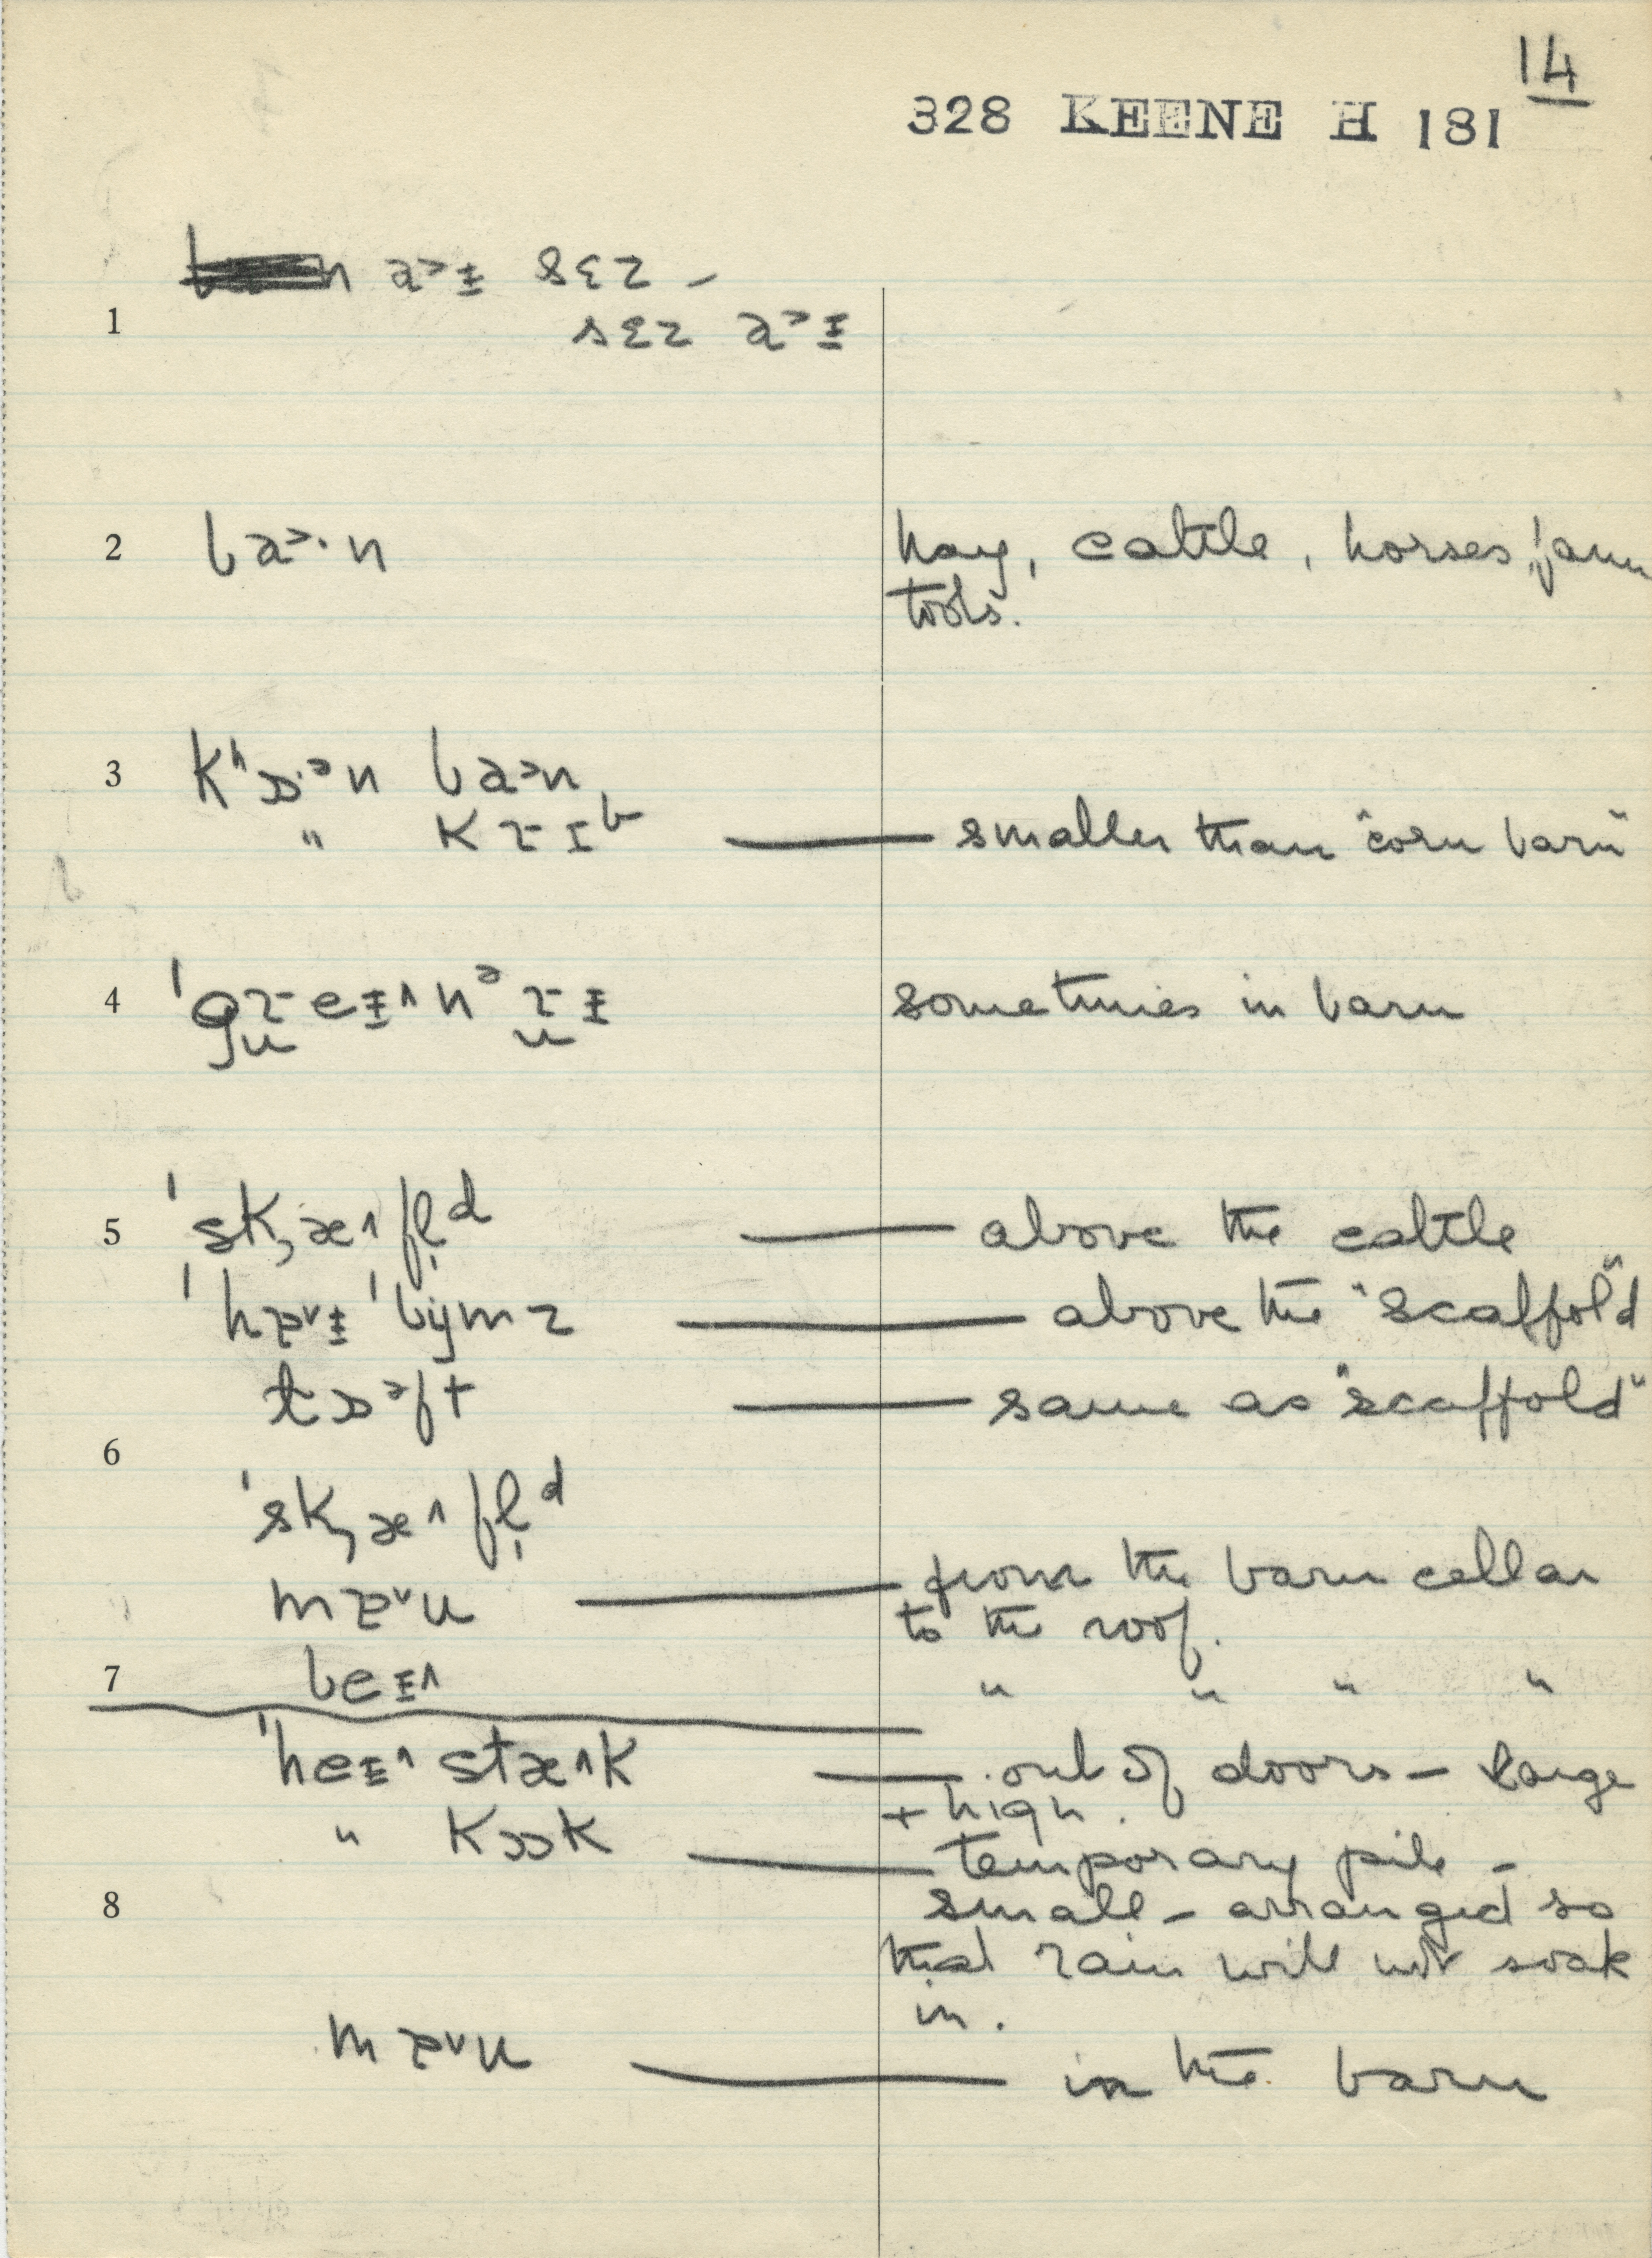 14
328 KEENE H 181
n a˃ᵻ sɛz –
1 sɛz a˃ᵻ
2 ba˃·n hay, cattle, horses, farm
tools.
3 kʰɒ·ᵊn ba˃n
" K ɪᵇ — smaller than "corn barn"
4 sometimes in barn
5 ˈsk,æ˄fl̩ᵈ — above the cattle
— above the "scaffold"
lɒᵊft — same as "scaffold"
6
ˈsk,æ˄fl̩ᵈ
mɐ˅u — from the barn cellar
to the roof.
7 beᵻ˄ " " " "
ˈheᵻ˄ stæ˄k — out of doors – large
+ high.
" kɒk — temporary pile –
8 small – arranged so
that rain will not soak
in.
mɐ˅u — in the barn